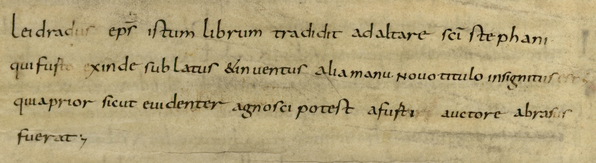 Leidradus ep̄s istum librum tradidit ad altare sc̄i stephani
qui fusto exinde sublatus & inventus alia manu novo titulo insignitus est
quia prior sicut evidenter agnosci potest a fusti auctore abrasus
fuerat;